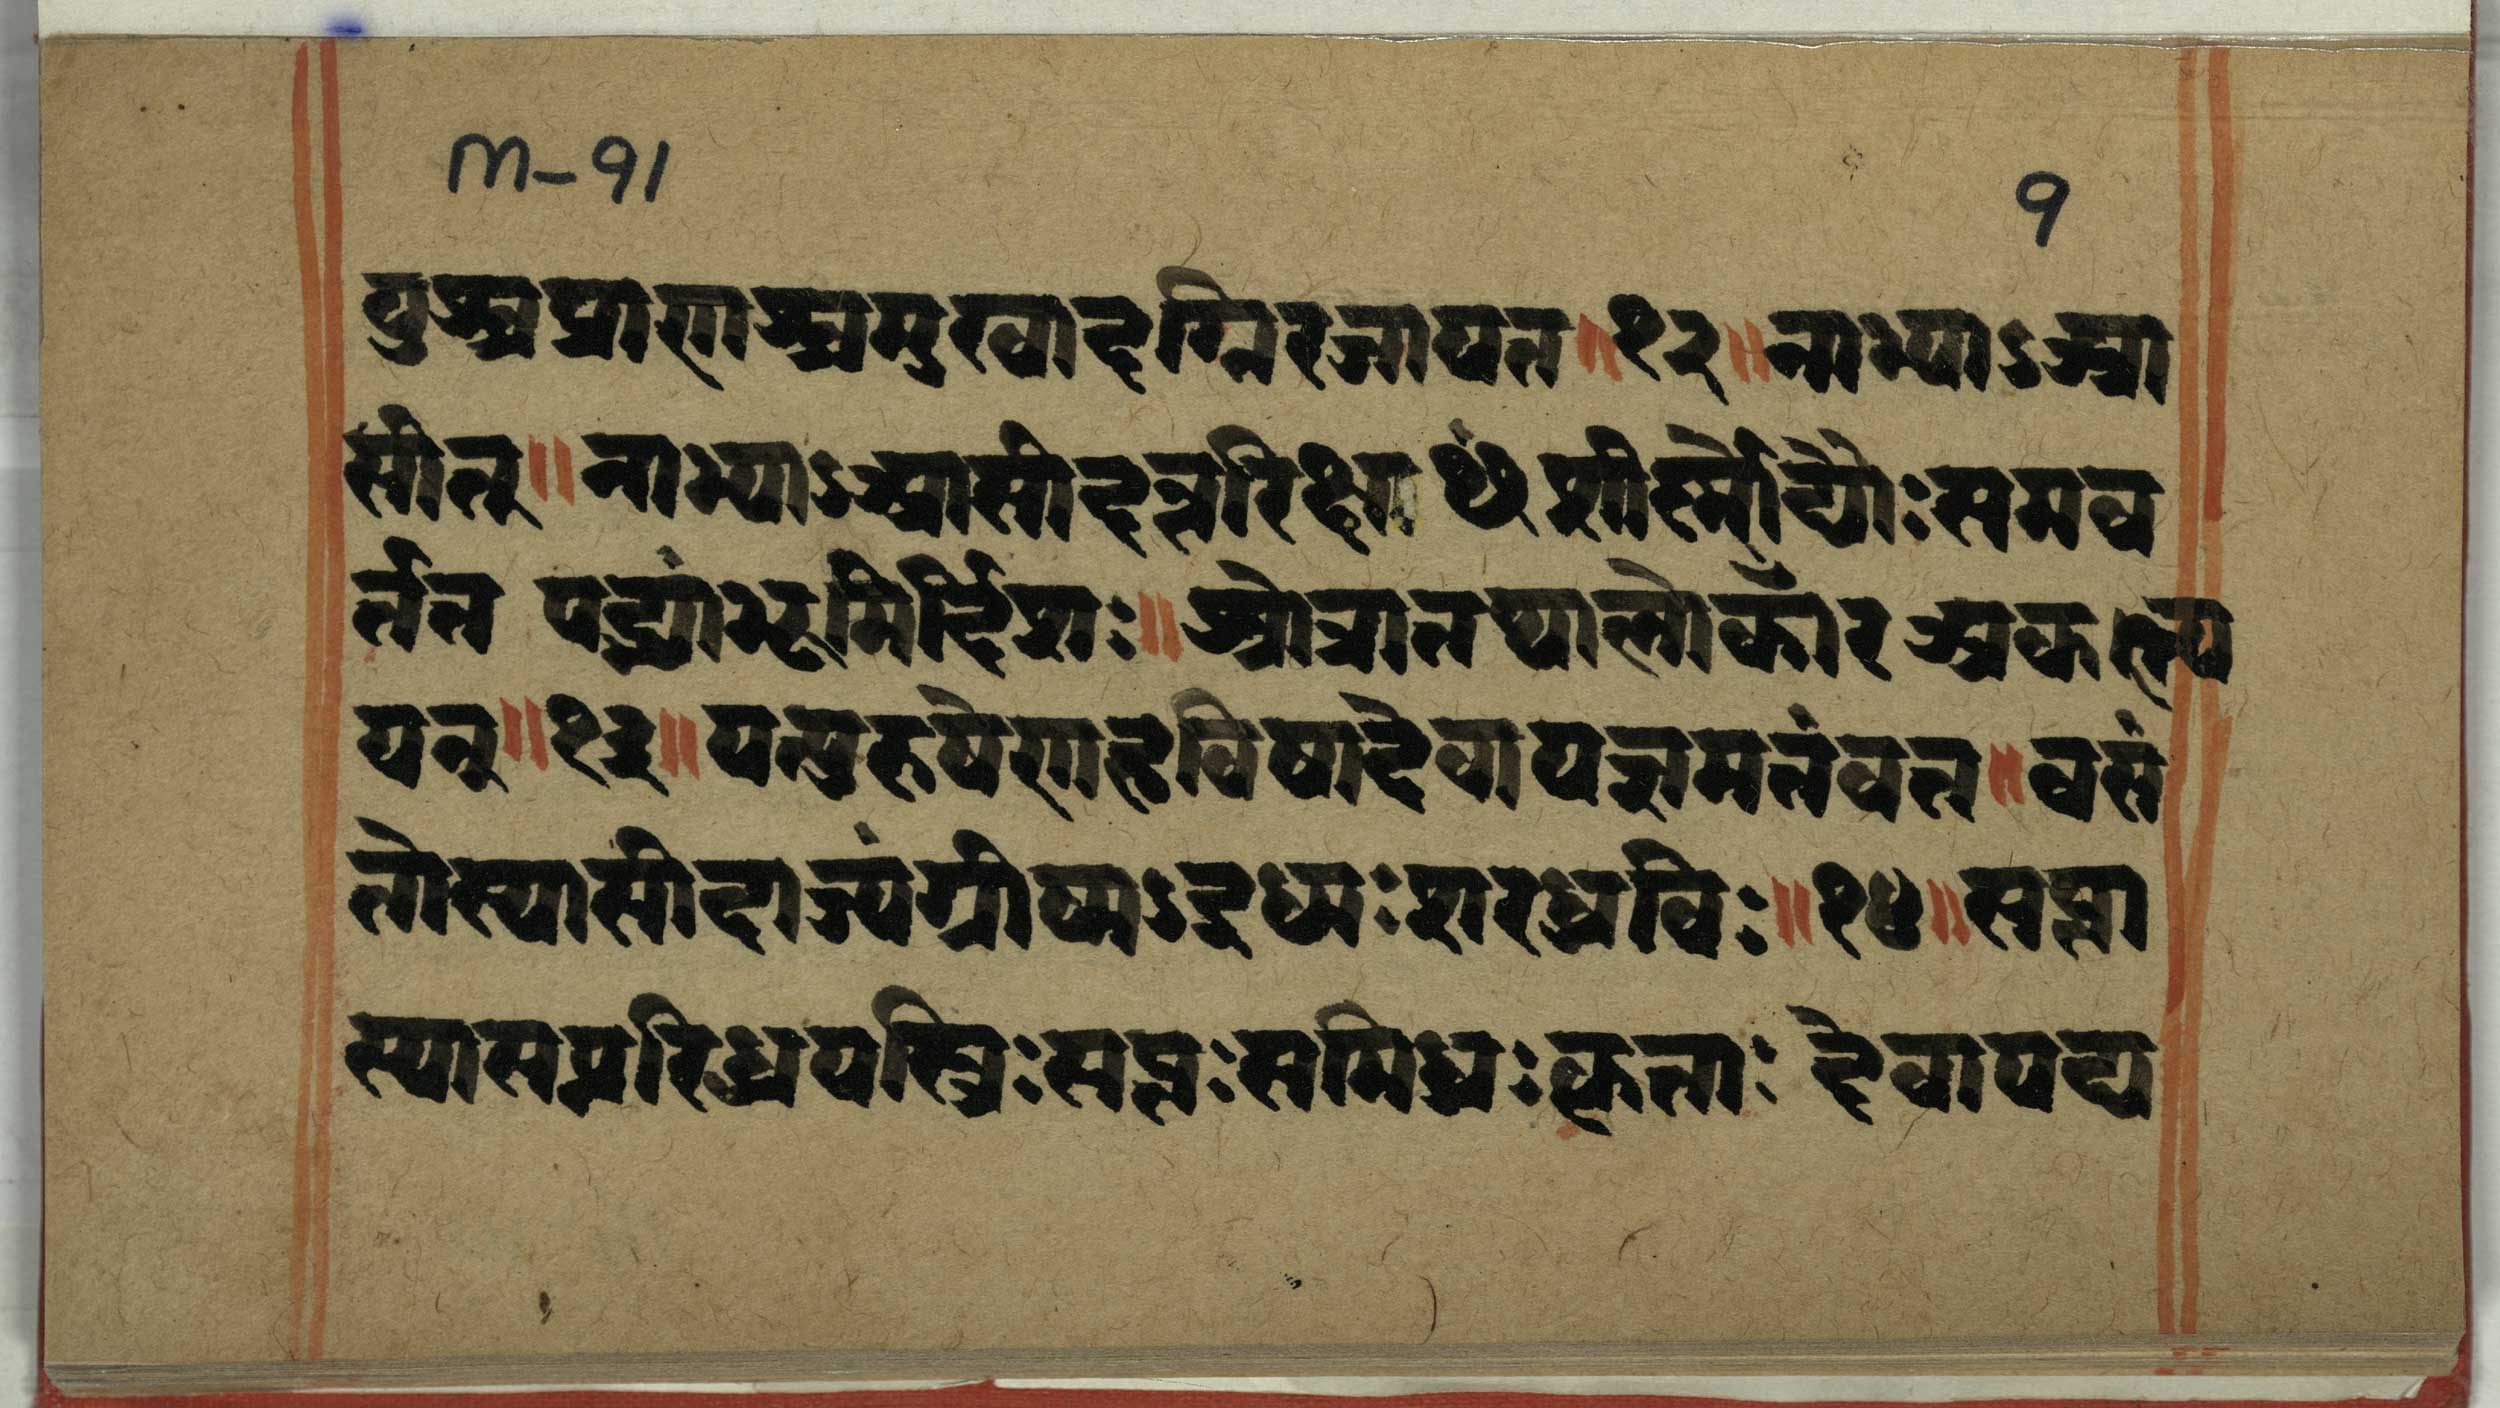 M-91
9
युश्चप्राणश्चमुखादग्निरजायत॥१२॥नाभ्याऽआ
सीत्॥नाभ्याऽआसीदन्तरिक्षꣳशीर्ष्णोद्यौःसमव
र्तत पद्भ्यांभूमिर्दिशः॥श्रोत्रात्तथालोकाँर अकल्प
यन्॥१३॥यत्पुरुषेणहविषादेवायज्ञमतंवत॥वसं
तोस्यासीदाज्यंग्रीष्मऽइध्मःशरद्धविः॥१४॥सप्ता
स्यासप्नरिधयस्त्रिःसप्तःसमिधःकृताः देवायद्य